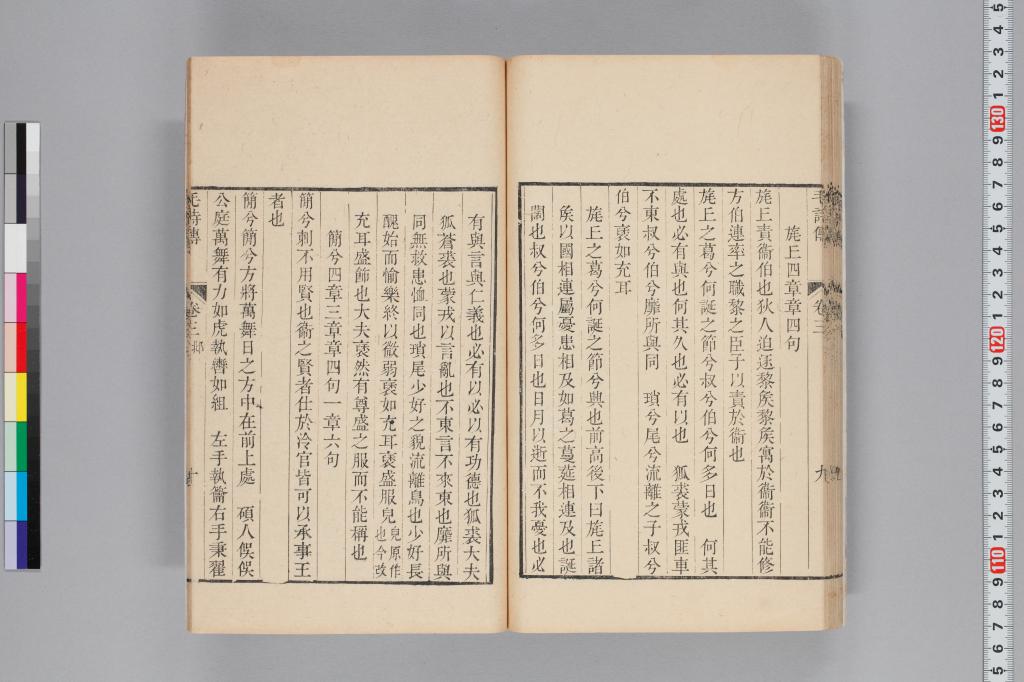 毛詩傳 卷三 九
旄丘四章章四句
旄丘責衞伯也狄人迫逐黎矦黎矦寓於衞衞不能修
方伯連率之職黎之臣子以責於衞也
旄丘之葛兮何誕之節兮叔兮伯兮何多日也 何其
處也必有與也何其久也必有以也 狐裘蒙戎匪車
不東叔兮伯兮靡所與同 瑣兮尾兮流離之子叔兮
伯兮褎如充耳
旄丘之葛兮何誕之節兮興也前高後下曰旄丘諸
矦以國相連屬憂患相及如葛之蔓莚相連及也誕
闊也叔兮伯兮何多日也日月以逝而不我憂也必
有與言與仁義也必有以必以有功德也狐裘大夫
狐蒼裘也蒙戎以言亂也不東言不來東也靡所與
同無救患恤同也瑣尾少好之貌流離鳥也少好長
醜始而愉樂終以微弱褎如充耳褎盛服皃皃原作也今改
充耳盛飾也大夫褎然有尊盛之服而不能稱也
簡兮四章三章章四句一章六句
簡兮刺不用賢也衞之賢者仕於泠官皆可以承事王
者也
簡兮簡兮方將萬舞日之方中在前上處 碩人俁俁
公庭萬舞有力如虎執轡如組 左手執籥右手秉翟
毛詩傳 卷三 邶 十
5
4
3
2
1
130
9
8
7
6
5
4
3
2
1
120
9
8
7
6
5
4
3
2
1
110
9
8
7
6
5